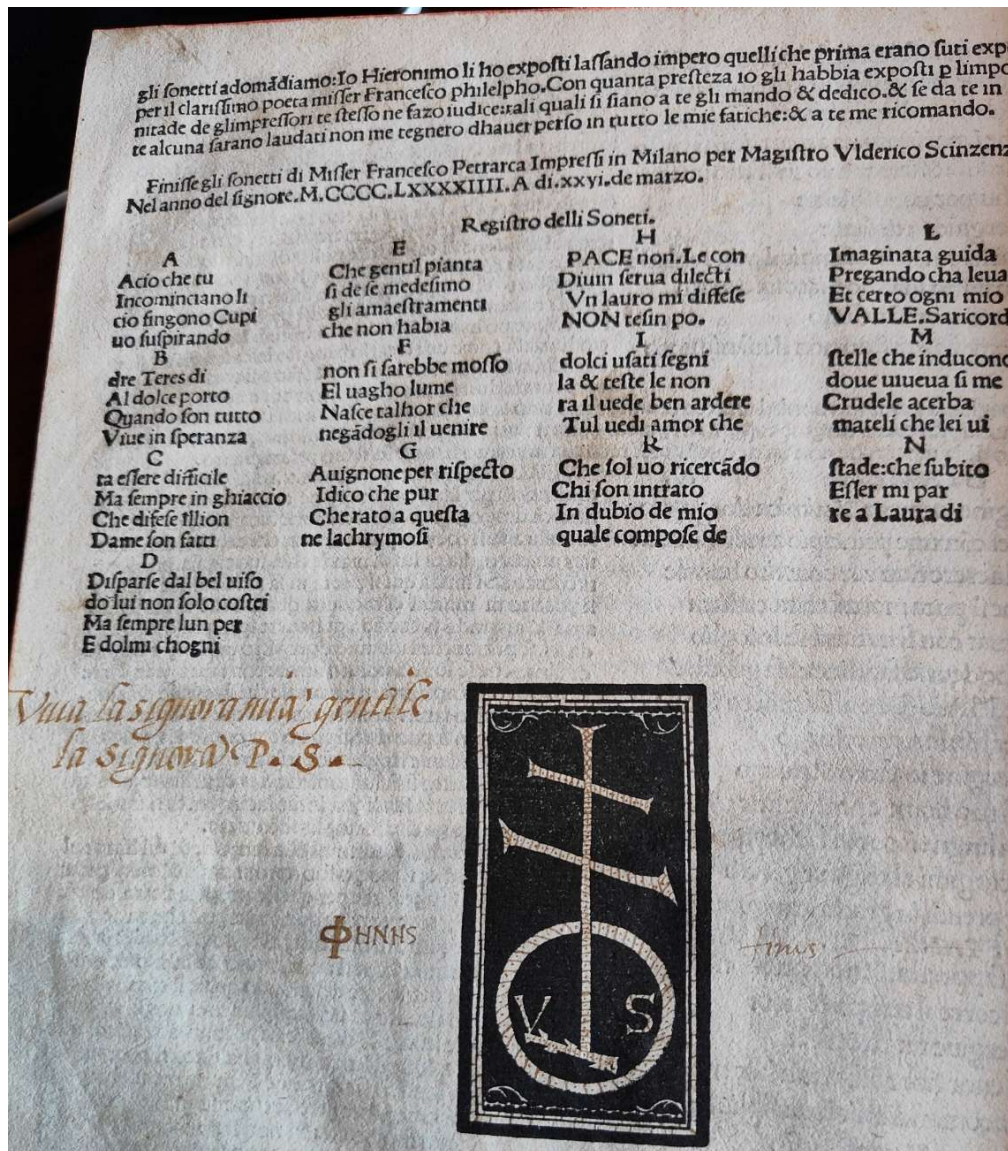 gli ſonetti adomãdiamo:Io Hieronimo li ho expoſti laſſando impero quelli che prima erano ſuti exp
per il clariſſimo poeta miſſer Franceſco philelpho.Con quanta preſteza io gli habbia expoſti ꝑ limpo
nitade de glimpreſſori te ſteſſo ne fazo iudice:tali quali ſi ſiano a te gli mando & dedico.& ſe da te in
te alcuna ſarano laudati non me tegnero dhauer perſo in tutto le mie fatiche:& a te me ricomando.
Finiſſe gli ſonetti di Miſſer Franceſco Petrarca Impreſſi in Milano per Magiſtro Vlderico Scinzenz
Nel anno del ſignore.M.CCCC.LXXXXIIII.A di.xxvi.de marzo.
Regiſtro delli Soneti.
A
Acio che tu
Incominciano li
cio fingono Cupi
uo ſuſpirando
B
dre Teres di
Al dolce porto
Quando ſon tutto
Viue in ſperanza
C
ta eſſere difficile
Ma ſempre in ghiaccio
Che difeſe Illion
Dame ſon fatti
D
Diſparſe dal bel uiſo
do lui non ſolo coſtei
Ma ſempre lun per
E dolmi chogni
E
Che gentil pianta
ſi de ſe medeſimo
gli amaeſtramenti
che non habia
F
non ſi farebbe moſſo
El uagho lume
Naſce talhor che
negãdogli il uenire
G
Auignone per riſpecto
Idico che pur
Che rato a queſta
ne lachrymoſi
H
PACE non.Le con
Diuin ſerua dilecti
Vn lauro mi diffeſe
NON teſin po.
I
dolci uſati ſegni
la & teſte le non
ra il uede ben ardere
Tul uedi amor che
K
Che ſol uo ricercãdo
Chi ſon intrato
In dubio de mio
quale compoſe de
L
Imaginata guida
Pregando cha leua
Et certo ogni mio
VALLE.Saricord
M
ſtelle che inducono
doue uiueua ſi me
Crudele acerba
mateli che lei ui
N
ſtade:che ſubito
Eſſer mi par
re a Laura di
Viua la signora mia gentile
la signora P. S.
ΦHNHS
finis
V S